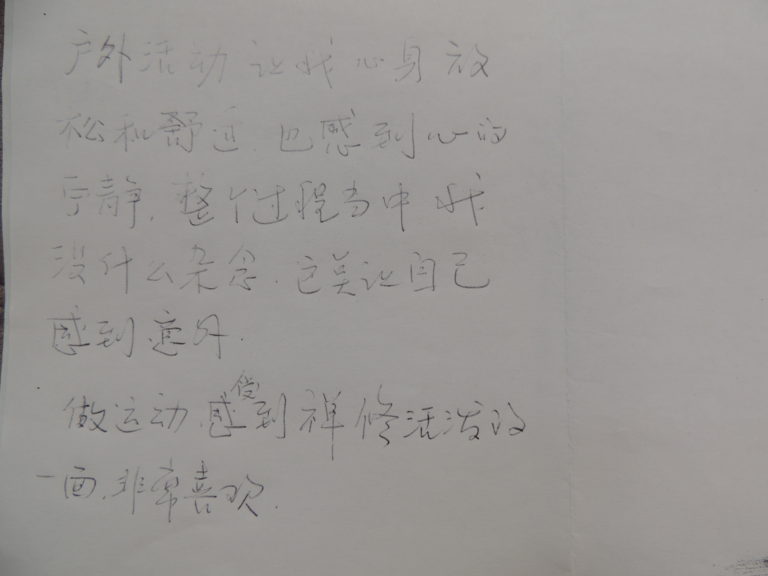 户外活动让我心身放
松和舒适.也感到心的
宁静.整个过程当中我
没什么杂念.这笑让自己
感到意外.
做运动.感受到禅修活泼的
一面.非常喜欢.